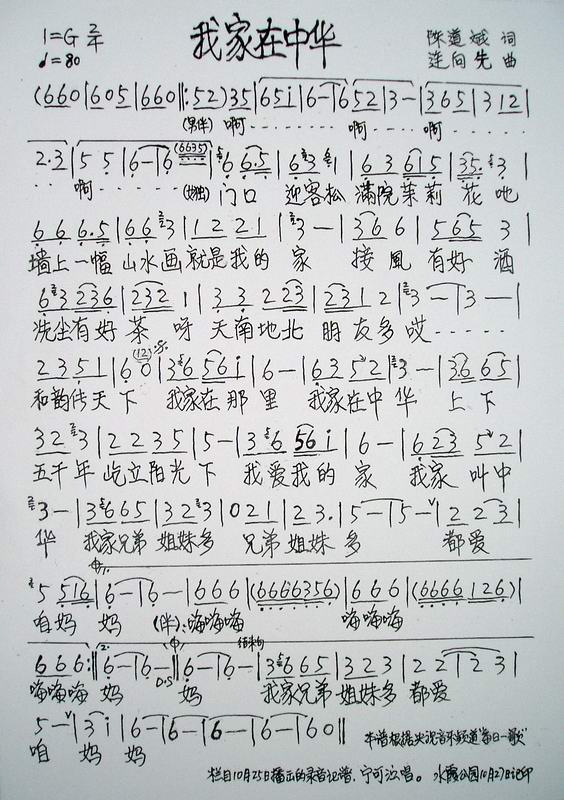 1=G 2/4 我家在中华 陈道斌 词
♩=80 连向先 曲
(660|605|660‖:52)35|651|6-|652|3-|365|312|
(男伴) 啊 啊 啊
2·3|55|6-|6(6635)|66·5|631|63615|35·3|
啊 (女独) 门口 迎客松 满院茉莉 花 吔
666·5|663|1221|3-|366|5653|
墙上一幅 山水画 就是我的 家 接風 有好 酒
63236|2321|33223|2312|3-|3-|
洗尘有好 茶 呀 天南地北 朋友多 哎
2351|60|36561|6-|6352|3-|3665|
和韵传天下 我家在那里 我家在中华 上下
323|2235|5-|36561|6-|62352|
五千年 屹立阳光下 我爱我的 家 我家 叫中
3-|3665|323|021|23·|5-|5-|223|
华 我家兄弟 姐妹多 兄弟 姐妹 多 都爱
5516|6-|6-|666|(6666356)|666|(6666126)|
咱妈 妈 (伴):嗨嗨嗨 嗨嗨嗨
666:‖6-|6-‖6-|6-|3665|323|22|223|
结束句
D.S
嗨嗨嗨 妈 妈 我家兄弟 姐妹多 都爱
5-|3i|6-|6-|6-|6-|60‖
咱 妈 妈
本谱根据央视音乐频道“每日一歌”
栏目10月25日播出的录音记谱,宁可泣唱。 水霞公园10月27日记印